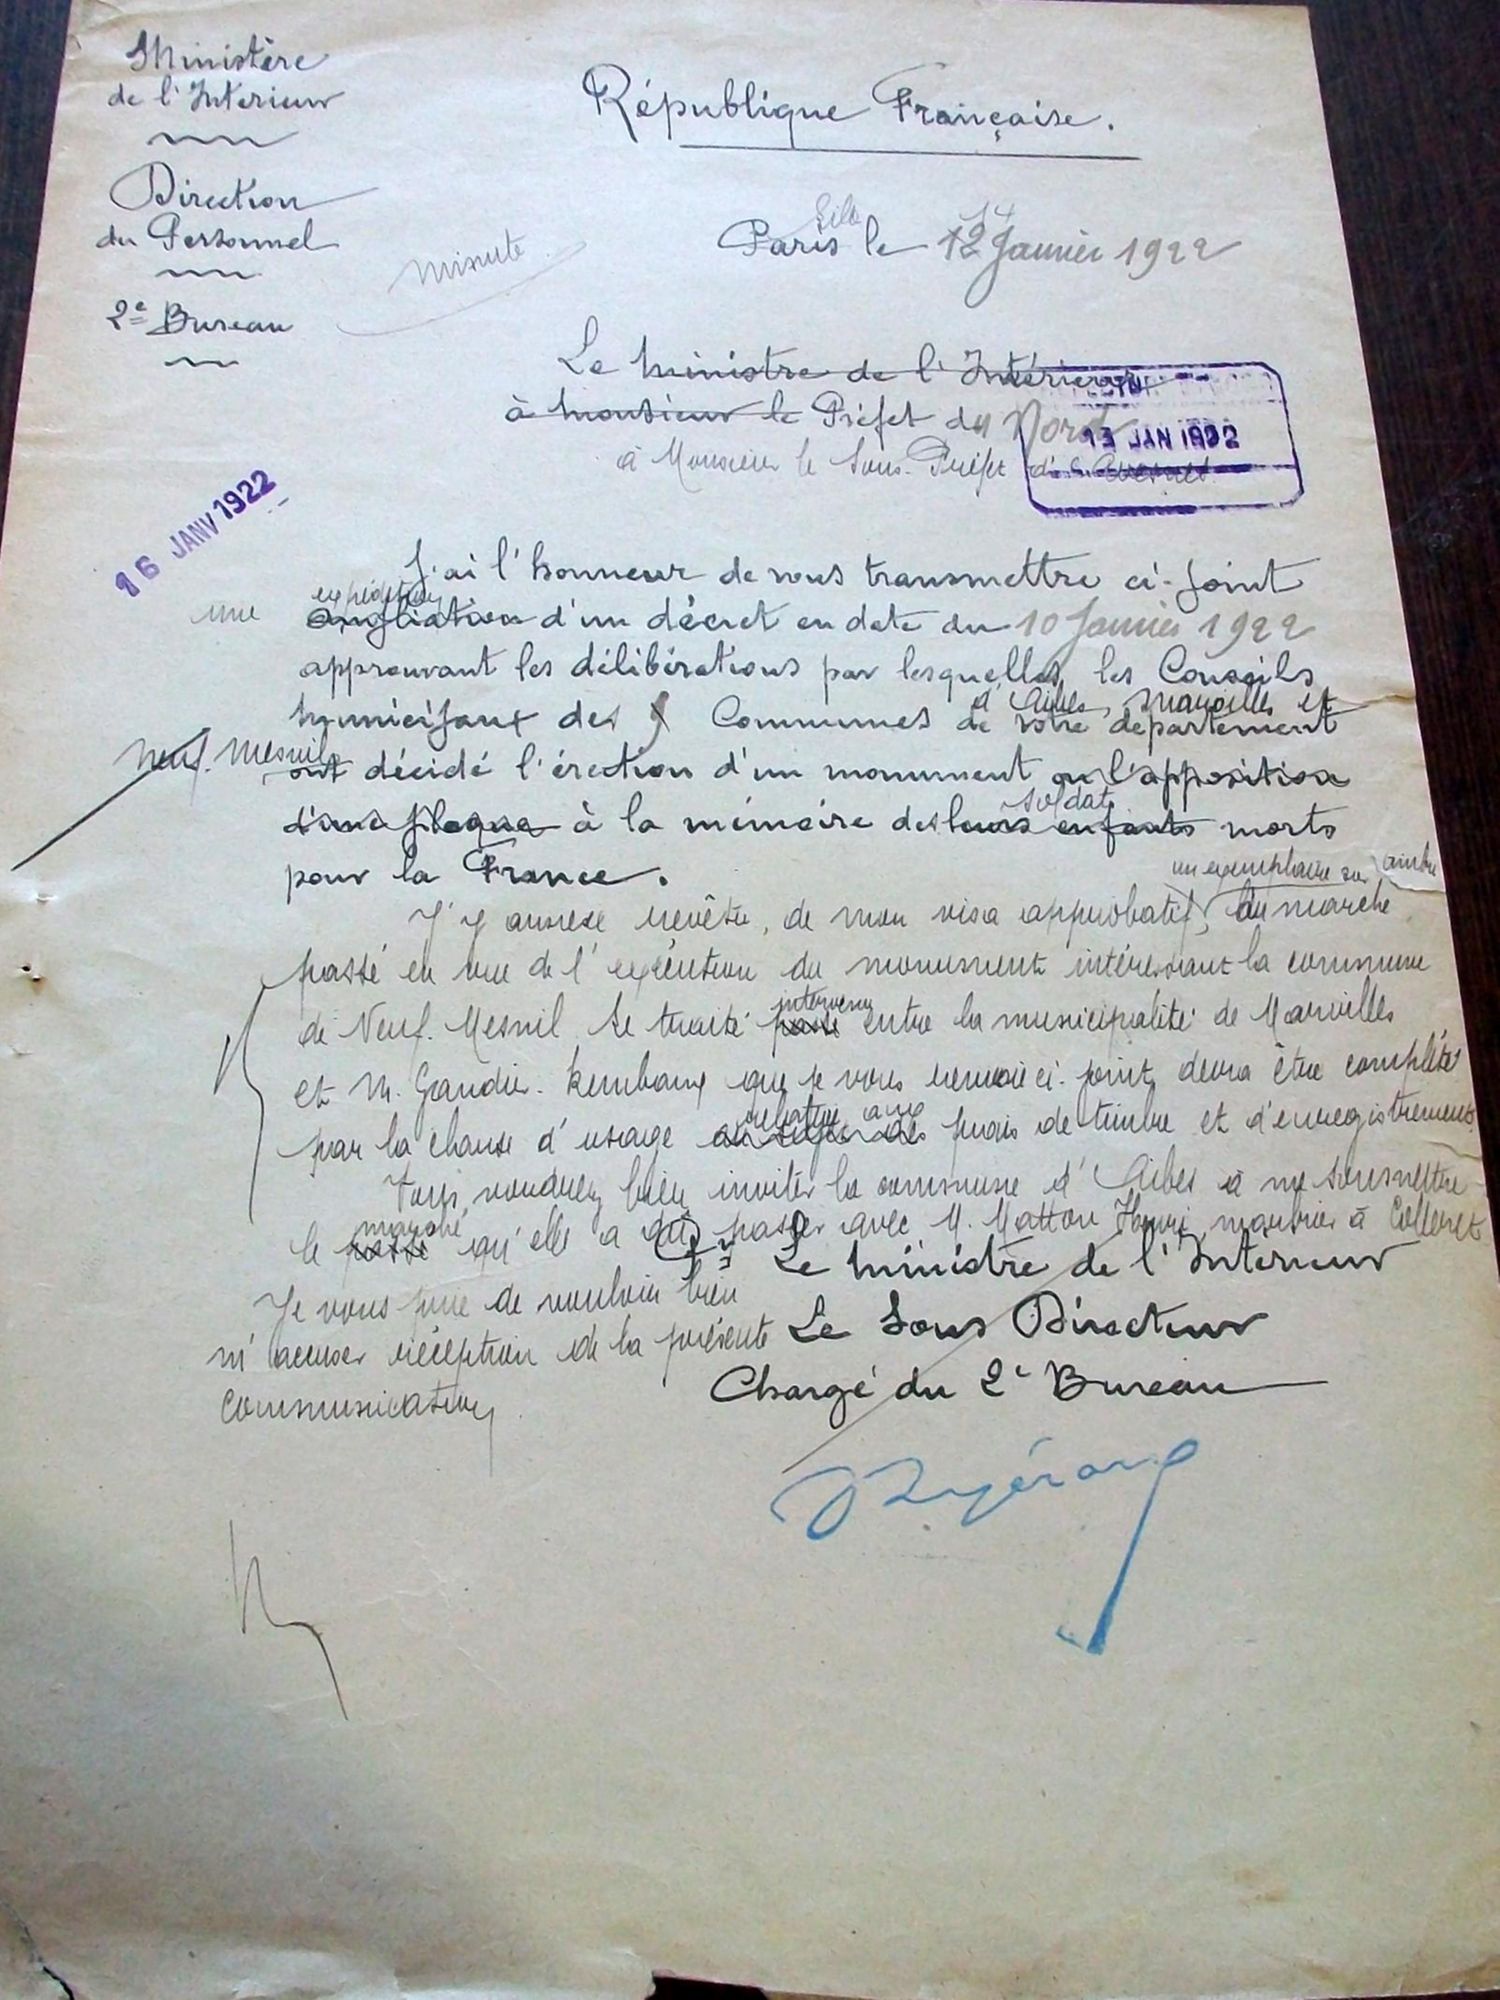 Ministère
de l'Intérieur
République Française.
Direction
du Personnel
minute
Lille
Paris le 12 14 Janvier 1922
2e Bureau
Le Ministre de l'Intérieur
à Monsieur le Préfet du Nord
13 JAN 1922
à Monsieur le Sous-Préfet d'Avesnes
16 JANV 1922
J'ai l'honneur de vous transmettre ci-joint
une expédition
ampliation d'un décret en date du 10 Janvier 1922
approuvant les délibérations par lesquelles les Conseils
d'Aibes, Maroilles et
Municipaux des 9 Communes de votre département
Neuf-Mesnil
ont décidé l'érection d'un monument ou l'apposition
soldats
d'une plaque à la mémoire des leurs enfants morts
pour la France.
un exemplaire sur timbre
J'y annexe revêtu, de mon visa approbatif, du marché
passé en vue de l'exécution du monument intéressant la commune
intervenu
de Neuf-Mesnil. Le traité passé entre la municipalité de Maroilles
et M. Gaudier-Rembaux que je vous renvoie ci-joint, devra être complété
relative aux
par la clause d'usage au sujet des frais de timbre et d'enregistrement.
Vous voudrez bien inviter la commune d'Aibes à me soumettre
marché
le passé qu'elle a dû passer avec M. Matton Henri, marbrier à Colleret
Je vous prie de vouloir bien
m'accuser réception de la présente
communication.
Le Ministre de l'Intérieur
Le Sous Directeur
Chargé du 2e Bureau